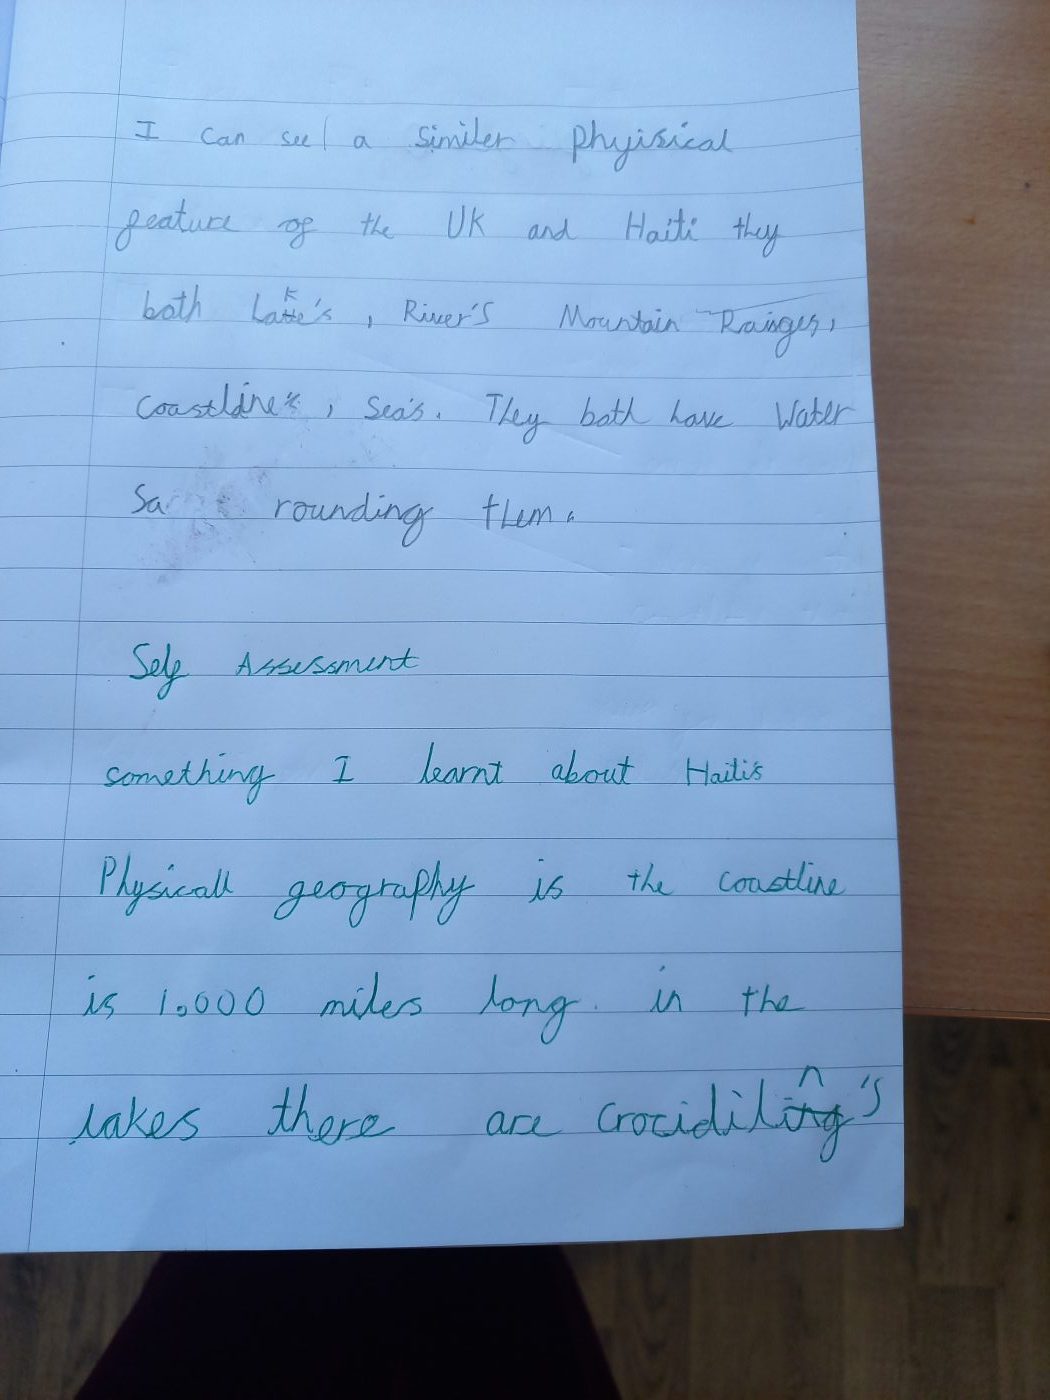 I can see a similer phyisical
feature of the UK and Haiti they
both Lake's, River's Mountain Rainges,
coastline's, Sea's. They both have Water
rounding them.
Self Assessment
something I learnt about Haitis
Physicall geography is the coastline
is 1,000 miles long. in the
lakes there are crocidilin's